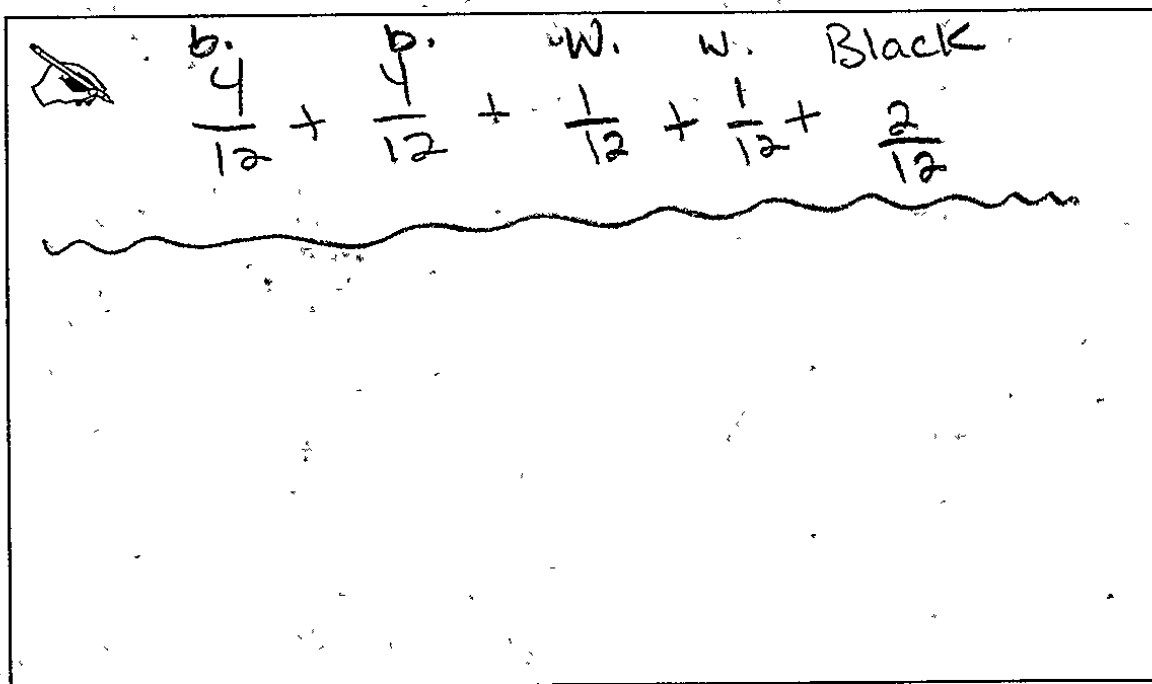 b. b. W. w. Black
4/12 + 4/12 + 1/12 + 1/12 + 2/12